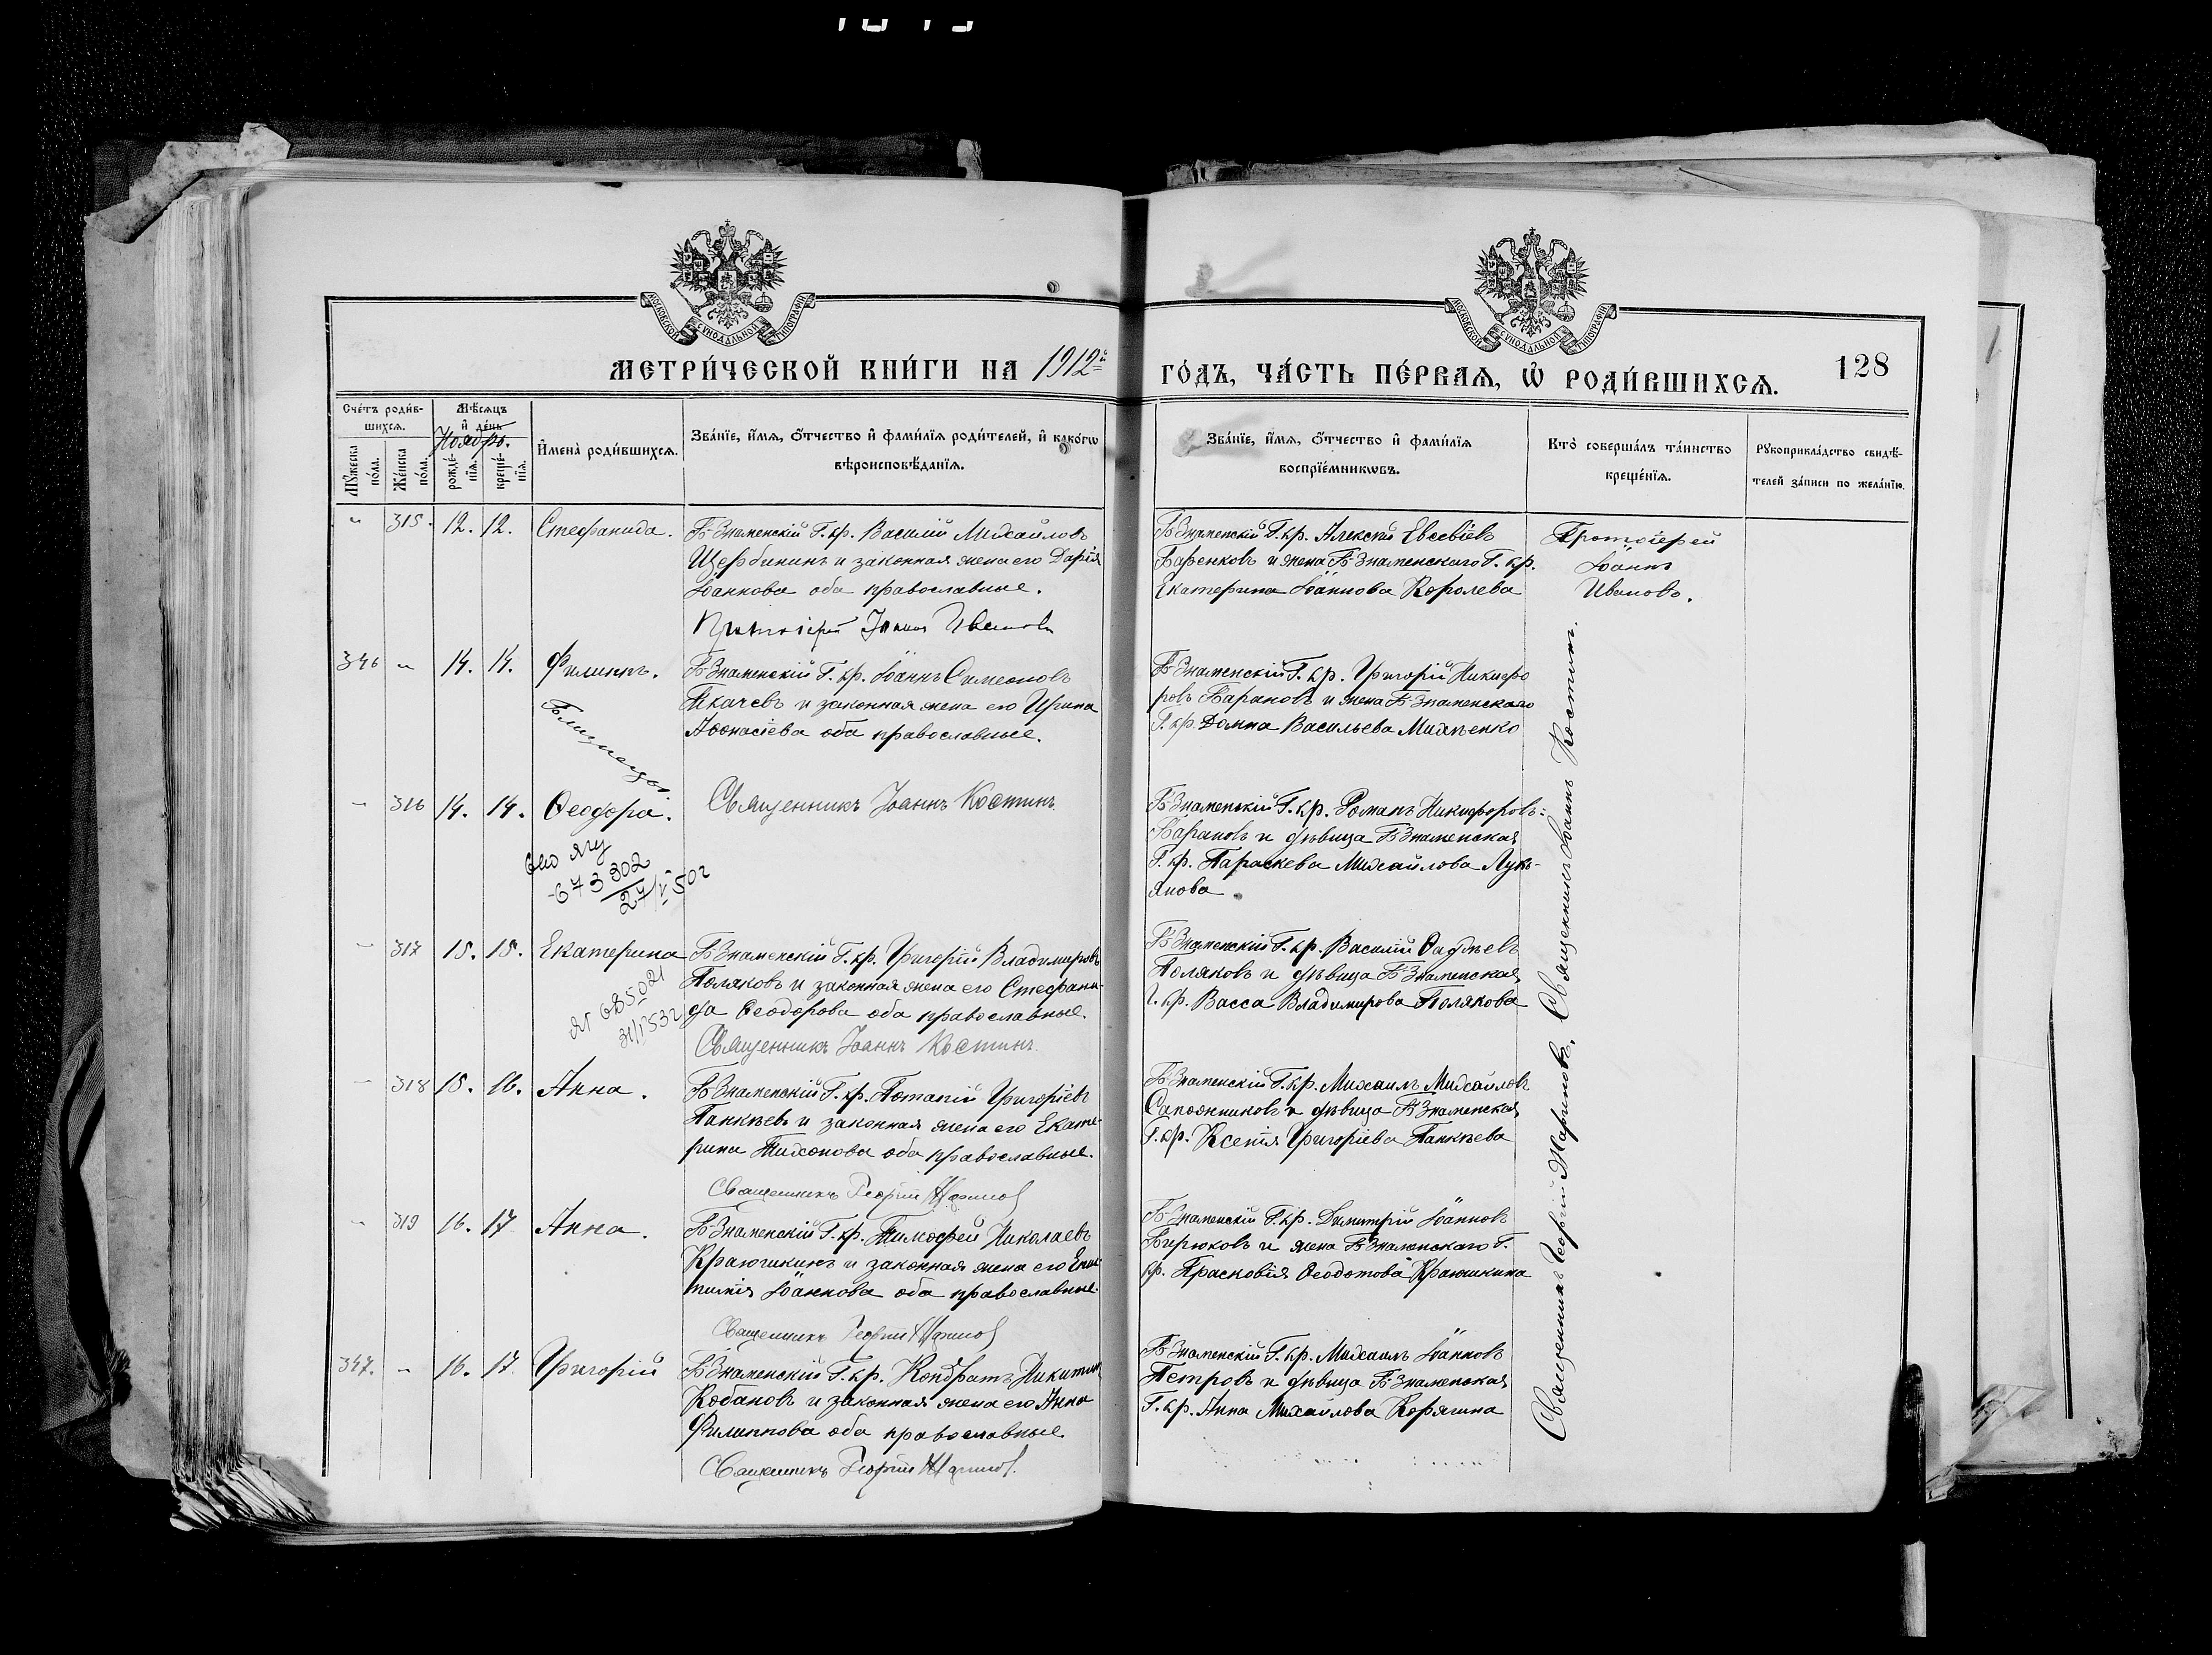 МОСКОВСКОЙ СѴНОДАЛЬНОЙ ТИПОГРАФІИ
МОСКОВСКОЙ СѴНОДАЛЬНОЙ ТИПОГРАФІИ
МЕТРИ́ЧЕСКОЙ КНИ́ГИ НА 1912й
ГО́ДЪ, ЧА́СТЬ ПЕ́РВАЯ, Ѡ РОДИ́ВШИХСЯ.
128
Сче́тъ роди́в-
шихсѧ.
Мѣ́сѧцъ
и҆ де́нь
Ноябрь.
Мꙋ́жеска по́ла.
Же́нска по́ла.
рожде́-нїѧ.
креще́-нїѧ.
И҆мена̀ роди́вшихсѧ.
Зва́нїе, и҆́мѧ, ѻ҆́тчество и҆ фами́лїѧ роди́телей, и҆ како́гѡ
вѣроисповѣ́данїѧ.
Зва́нїе, и҆́мѧ, ѻ҆́тчество и҆ фами́лїѧ
воспрїе́мникѡвъ.
Кто̀ соверша́лъ та́инство
креще́нїѧ.
Рꙋкоприкла́дство свидѣ́-
телей за́писи по жела́нїю.
" 315. 12. 12. Стефанида.
Б-Знаменскій Г. кр. Василій Михайловъ
Щербининъ и законная жена его Дарія
Іоаннова оба православные.
Протоіерей Іоаннъ Ивановъ
Б-Знаменскій Г. кр. Алексій Евсевіевъ
Баренковъ и жена Б-Знаменскаго Г. кр.
Екатерина Іоаннова Королева
Протоіерей
Іоаннъ
Ивановъ.
346 " 14. 14. Филиппъ.
Близнецы
Б-Знаменскій Г. кр. Іоаннъ Симеоновъ
Ткачевъ и законная жена его Ирина
Аѳонасіева оба православные.
Б-Знаменскій Г. кр. Григорій Никифо
ровъ Барановъ и жена Б-Знаменскаго
Г. кр. Домна Васильева Михненко
" 316 14. 14. Ѳеодора.
673302
27/V 50г
Священникъ Іоаннъ Костинъ
Б-Знаменскій Г. кр. Романъ Никифоровъ
Барановъ и дѣвица Б-Знаменская
Г. кр. Параскева Михайлова Лукь-
янова
" 317 15. 15. Екатерина
685021
31/I 53г
Б-Знаменскій Г. кр. Григорій Владимировъ
Поляковъ и законная жена его Стефани-
да Ѳеодорова оба православные.
Священникъ Іоаннъ Костинъ
Б-Знаменскій Г. кр. Василій Ѳаддѣевъ
Поляковъ и дѣвица Б-Знаменская
Г. кр. Васса Владимирова Полякова
" 318 15. 16. Анна.
Б-Знаменскій Г. кр. Потапій Григоріевъ
Панкѣевъ и законная жена его Екате-
рина Тихонова оба православные.
Священникъ Георгій Мариновъ
Б-Знаменскій Г. кр. Михаилъ Михайловъ
Сапожниковъ и дѣвица Б-Знаменская
Г. кр. Ксенія Григоріева Панкѣева
" 319 16. 17 Анна.
Б-Знаменскій Г. кр. Тимофей Николаевъ
Краюшкинъ и законная жена его
Іоаннова оба православные.
Священникъ Георгій Мариновъ
Б-Знаменскій Г. кр. Димитрій Іоанновъ
Бирюковъ и жена Б-Знаменскаго Г.
кр. Прасковія Ѳеодотова Краюшкина
347. " 16. 17. Григорій
Б-Знаменскій Г. кр. Кондратъ Никитин
Кобановъ и законная жена его Анна
Филиппова оба православные.
Священникъ Георгій Мариновъ.
Б-Знаменскій Г. кр. Михаилъ Іоанновъ
Петровъ и дѣвица Б-Знаменская
Г. кр. Анна Михайлова Корягина
Священникъ Георгій Мариновъ, Священникъ Іоаннъ Костинъ.